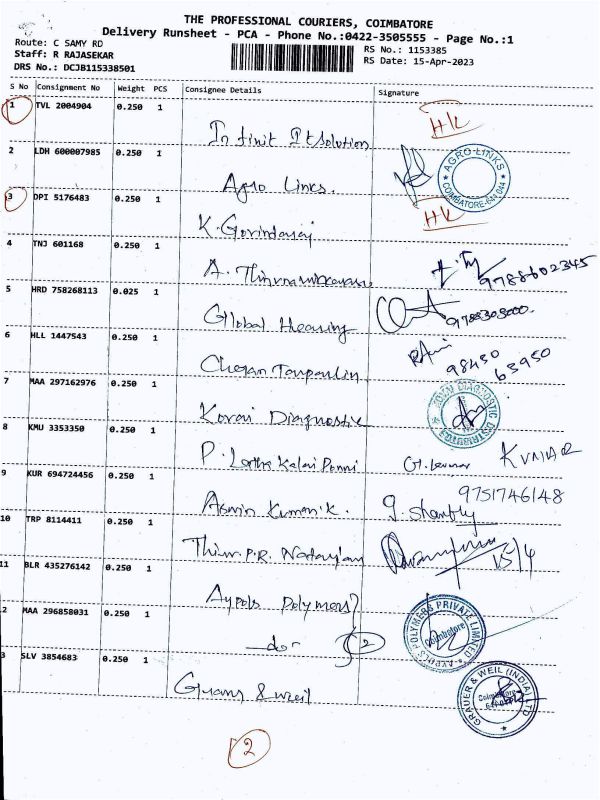 THE PROFESSIONAL COURIERS, COIMBATORE
Delivery Runsheet - PCA - Phone No.:0422-3505555 - Page No.:1
Route: C SAMY RD
Staff: R RAJASEKAR
DRS No.: DCJB115338501
RS No.: 1153385
RS Date: 15-Apr-2023
S No Consignment No Weight PCS Consignee Details Signature
1 TVL 2004904 0.250 1
HK
Infinit It Solution
2 LDH 600007985 0.250 1
AGRO-LINKS COIMBATORE-641 044
Agro Links.
3 DPI 5176483 0.250 1
HK
K. Govindaraj
4 TNJ 601168 0.250 1
A.
9788602345
5 HRD 758268113 0.025 1
Gllobal Hearing
6 HLL 1447543 0.250 1
98430 63950
Chetan Tarpaulin
7 MAA 297162976 0.250 1
DIAGNOSTIC DISTRIBUTORS
Kovai Diagnostic
8 KMU 3353350 0.250 1
P. Latha Kalai Ponni
KUMAR
9 KUR 694724456 0.250 1
9751746148
Aswin Kumar. K.
g. Shantly
10 TRP 8114411 0.250 1
Thiru. P.R. Natarajan
15/4
11 BLR 435276142 0.250 1
Aypols Polymers
AYPOLS POLYMERS PRIVATE LIMITED Coimbatore
2 MAA 296858031 0.250 1
-do- 2
3 SLV 3854683 0.250 1
GRAUER & WEIL (INDIA) LTD Coimbatore
Guang & weil
2